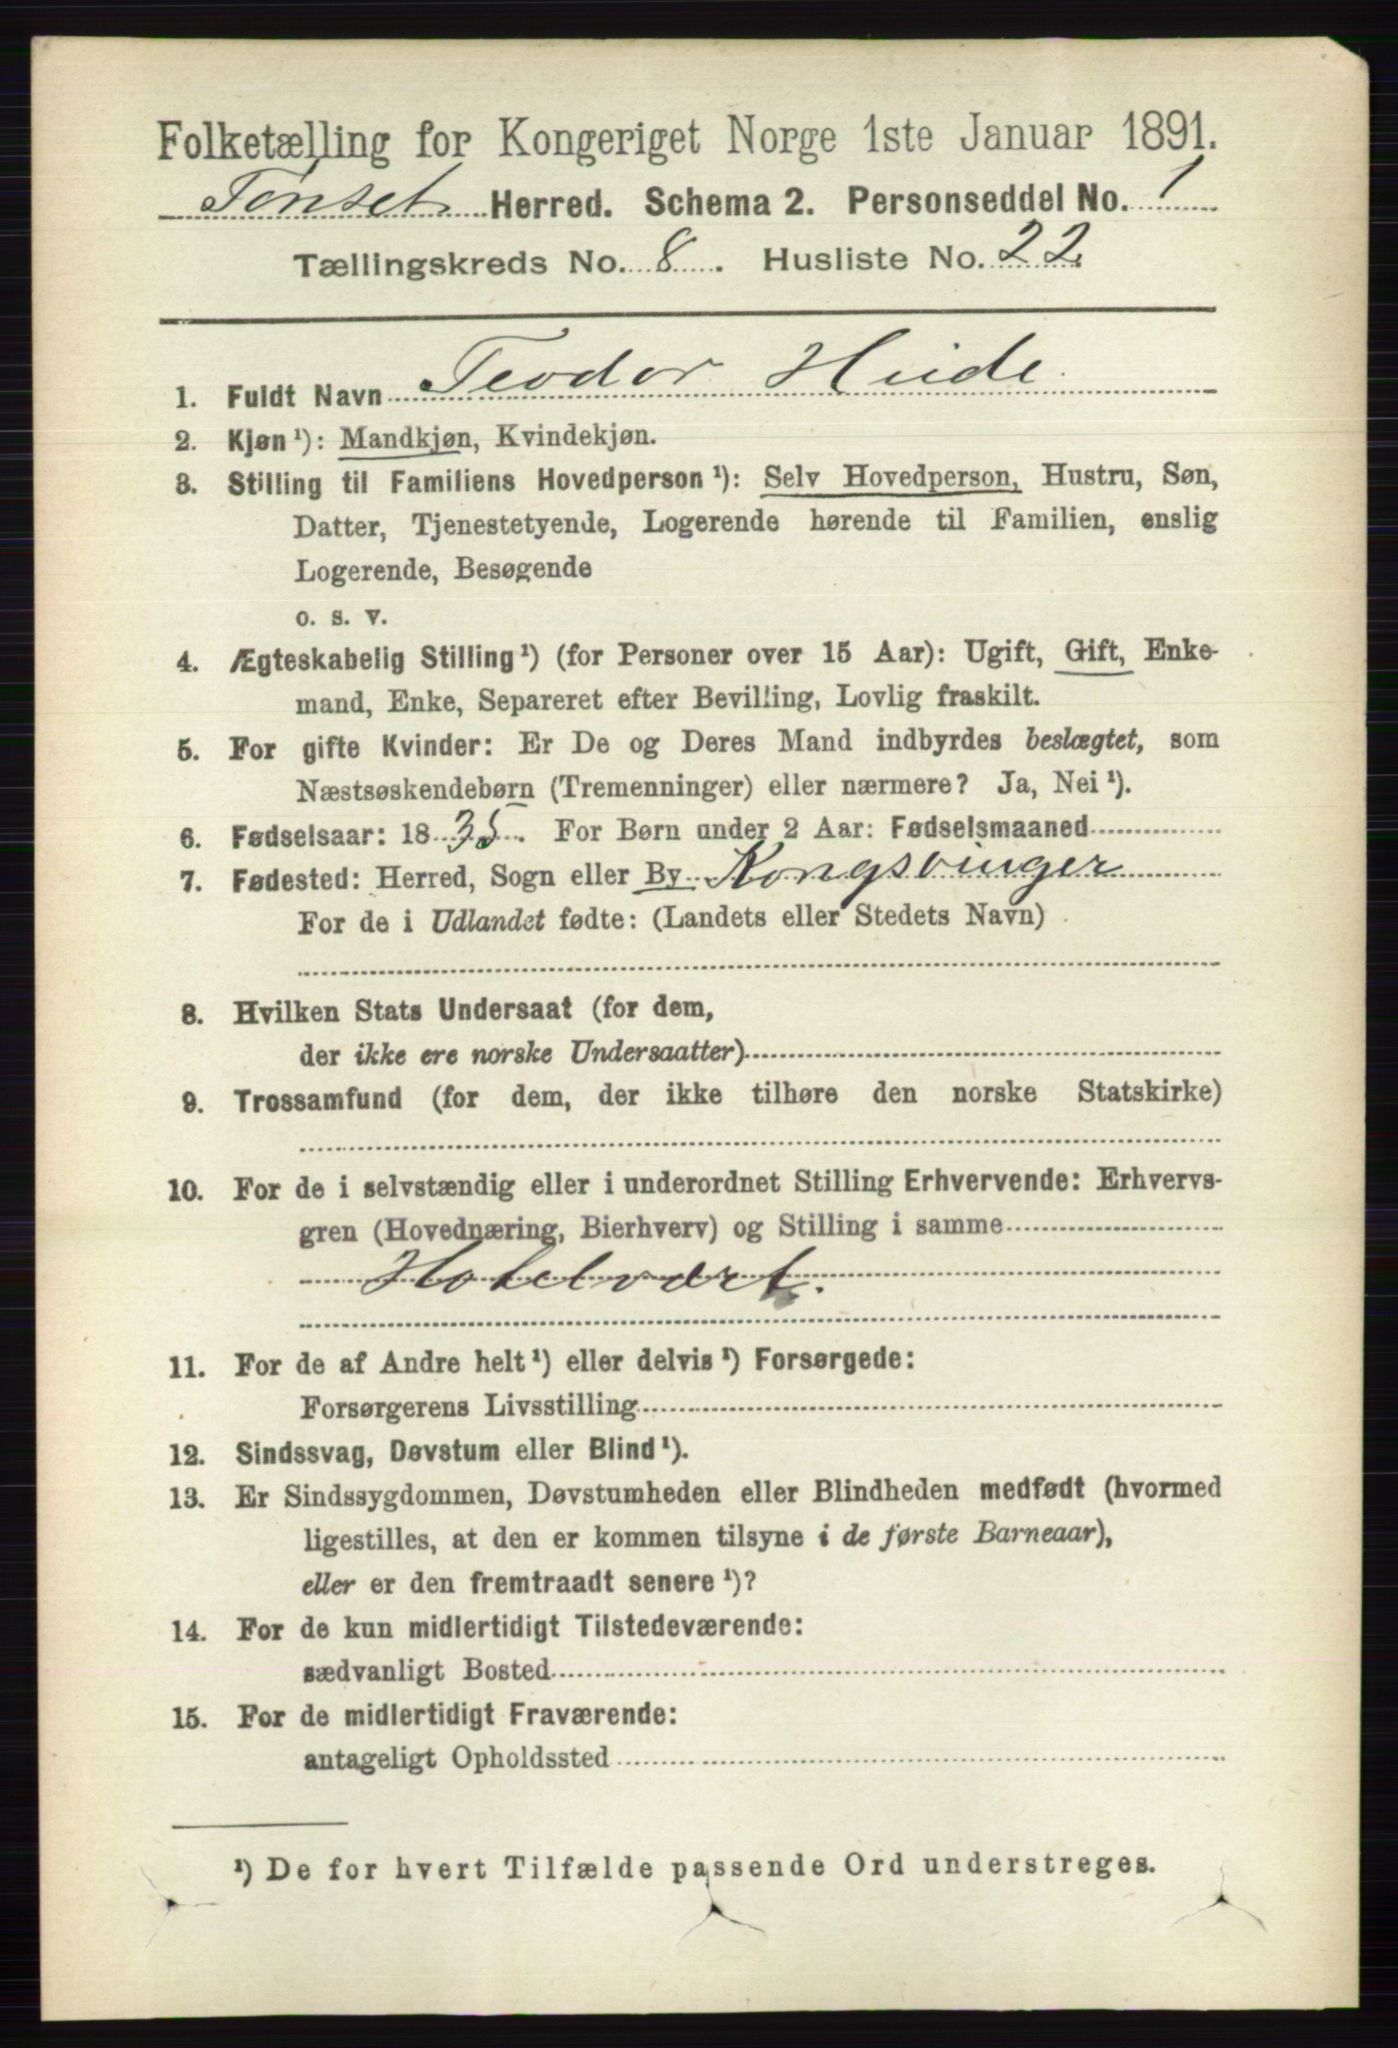 Folketælling for Kongeriget Norge 1ste Januar 1891.
Tønset Herred. Schema 2. Personseddel No. 1
Tællingskreds No. 8. Husliste No. 22.
1. Fuldt Navn Teodor
2. Kjøn ¹): Mandkjøn, Kvindekjøn.
3. Stilling til Familiens Hovedperson ¹): Selv Hovedperson, Hustru, Søn,
Datter, Tjenestetyende, Logerende hørende til Familien, enslig
Logerende, Besøgende
o. s. v.
4. Ægteskabelig Stilling ¹) (for Personer over 15 Aar): Ugift, Gift, Enke-
mand, Enke, Separeret efter Bevilling, Lovlig fraskilt.
5. For gifte Kvinder: Er De og Deres Mand indbyrdes beslægtet, som
Næstsøskendebørn (Tremenninger) eller nærmere? Ja, Nei ¹).
6. Fødselsaar: 1835. For Børn under 2 Aar: Fødselsmaaned
7. Fødested: Herred, Sogn eller By Kongsvinger
For de i Udlandet fødte: (Landets eller Stedets Navn)
8. Hvilken Stats Undersaat (for dem,
der ikke ere norske Undersaatter)
9. Trossamfund (for dem, der ikke tilhøre den norske Statskirke)
10. For de i selvstændig eller i underordnet Stilling Erhvervende: Erhvervs-
gren (Hovednæring, Bierhverv) og Stilling i samme
Hotelvært.
11. For de af Andre helt ¹) eller delvis ¹) Forsørgede:
Forsørgerens Livsstilling
12. Sindssvag, Døvstum eller Blind ¹).
13. Er Sindssygdommen, Døvstumheden eller Blindheden medfødt (hvormed
ligestilles, at den er kommen tilsyne i de første Barneaar),
eller er den fremtraadt senere ¹)?
14. For de kun midlertidigt Tilstedeværende:
sædvanligt Bosted
15. For de midlertidigt Fraværende:
antageligt Opholdssted
¹) De for hvert Tilfælde passende Ord understreges.